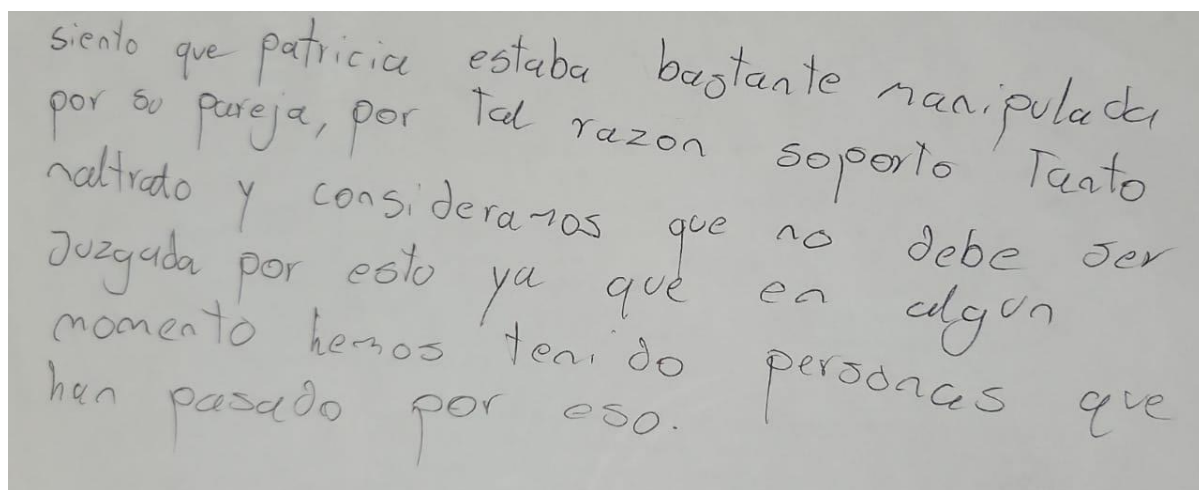 siento que patricia estaba bastante manipulada
por su pareja, por Tal razon soporto Tanto
maltrato y consideramos que no debe ser
Juzgada por esto ya que en algun
momento hemos tenido personas que
han pasado por eso.